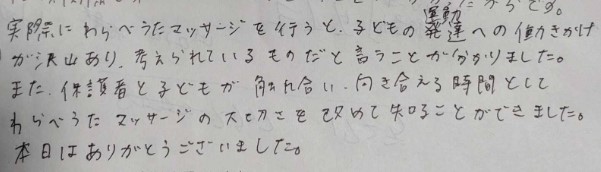 らです。
実際にわらべうたマッサージを行うと、子どもの運動発達への働きかけ
が沢山あり、考えられているものだと言うことが分かりました。
また、保護者と子どもが触れ合い、向き合える時間として
わらべうたマッサージの大切さを改めて知ることができました。
本日はありがとうございました。